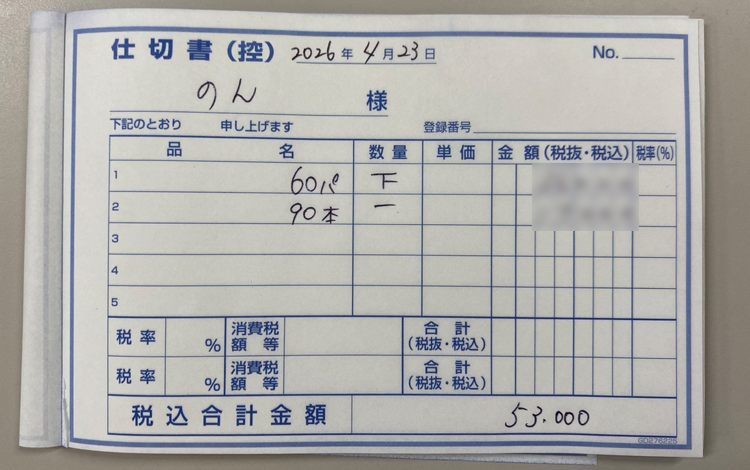 仕切書(控) 2026年4月23日 No.
のん 様
下記のとおり 申し上げます 登録番号
品名 数量 単価 金額(税抜・税込) 税率(%)
1 60パ 下
2 90本 一
3
4
5
税率 % 消費税額等 合計(税抜・税込)
税率 % 消費税額等 合計(税抜・税込)
税込合計金額 53.000